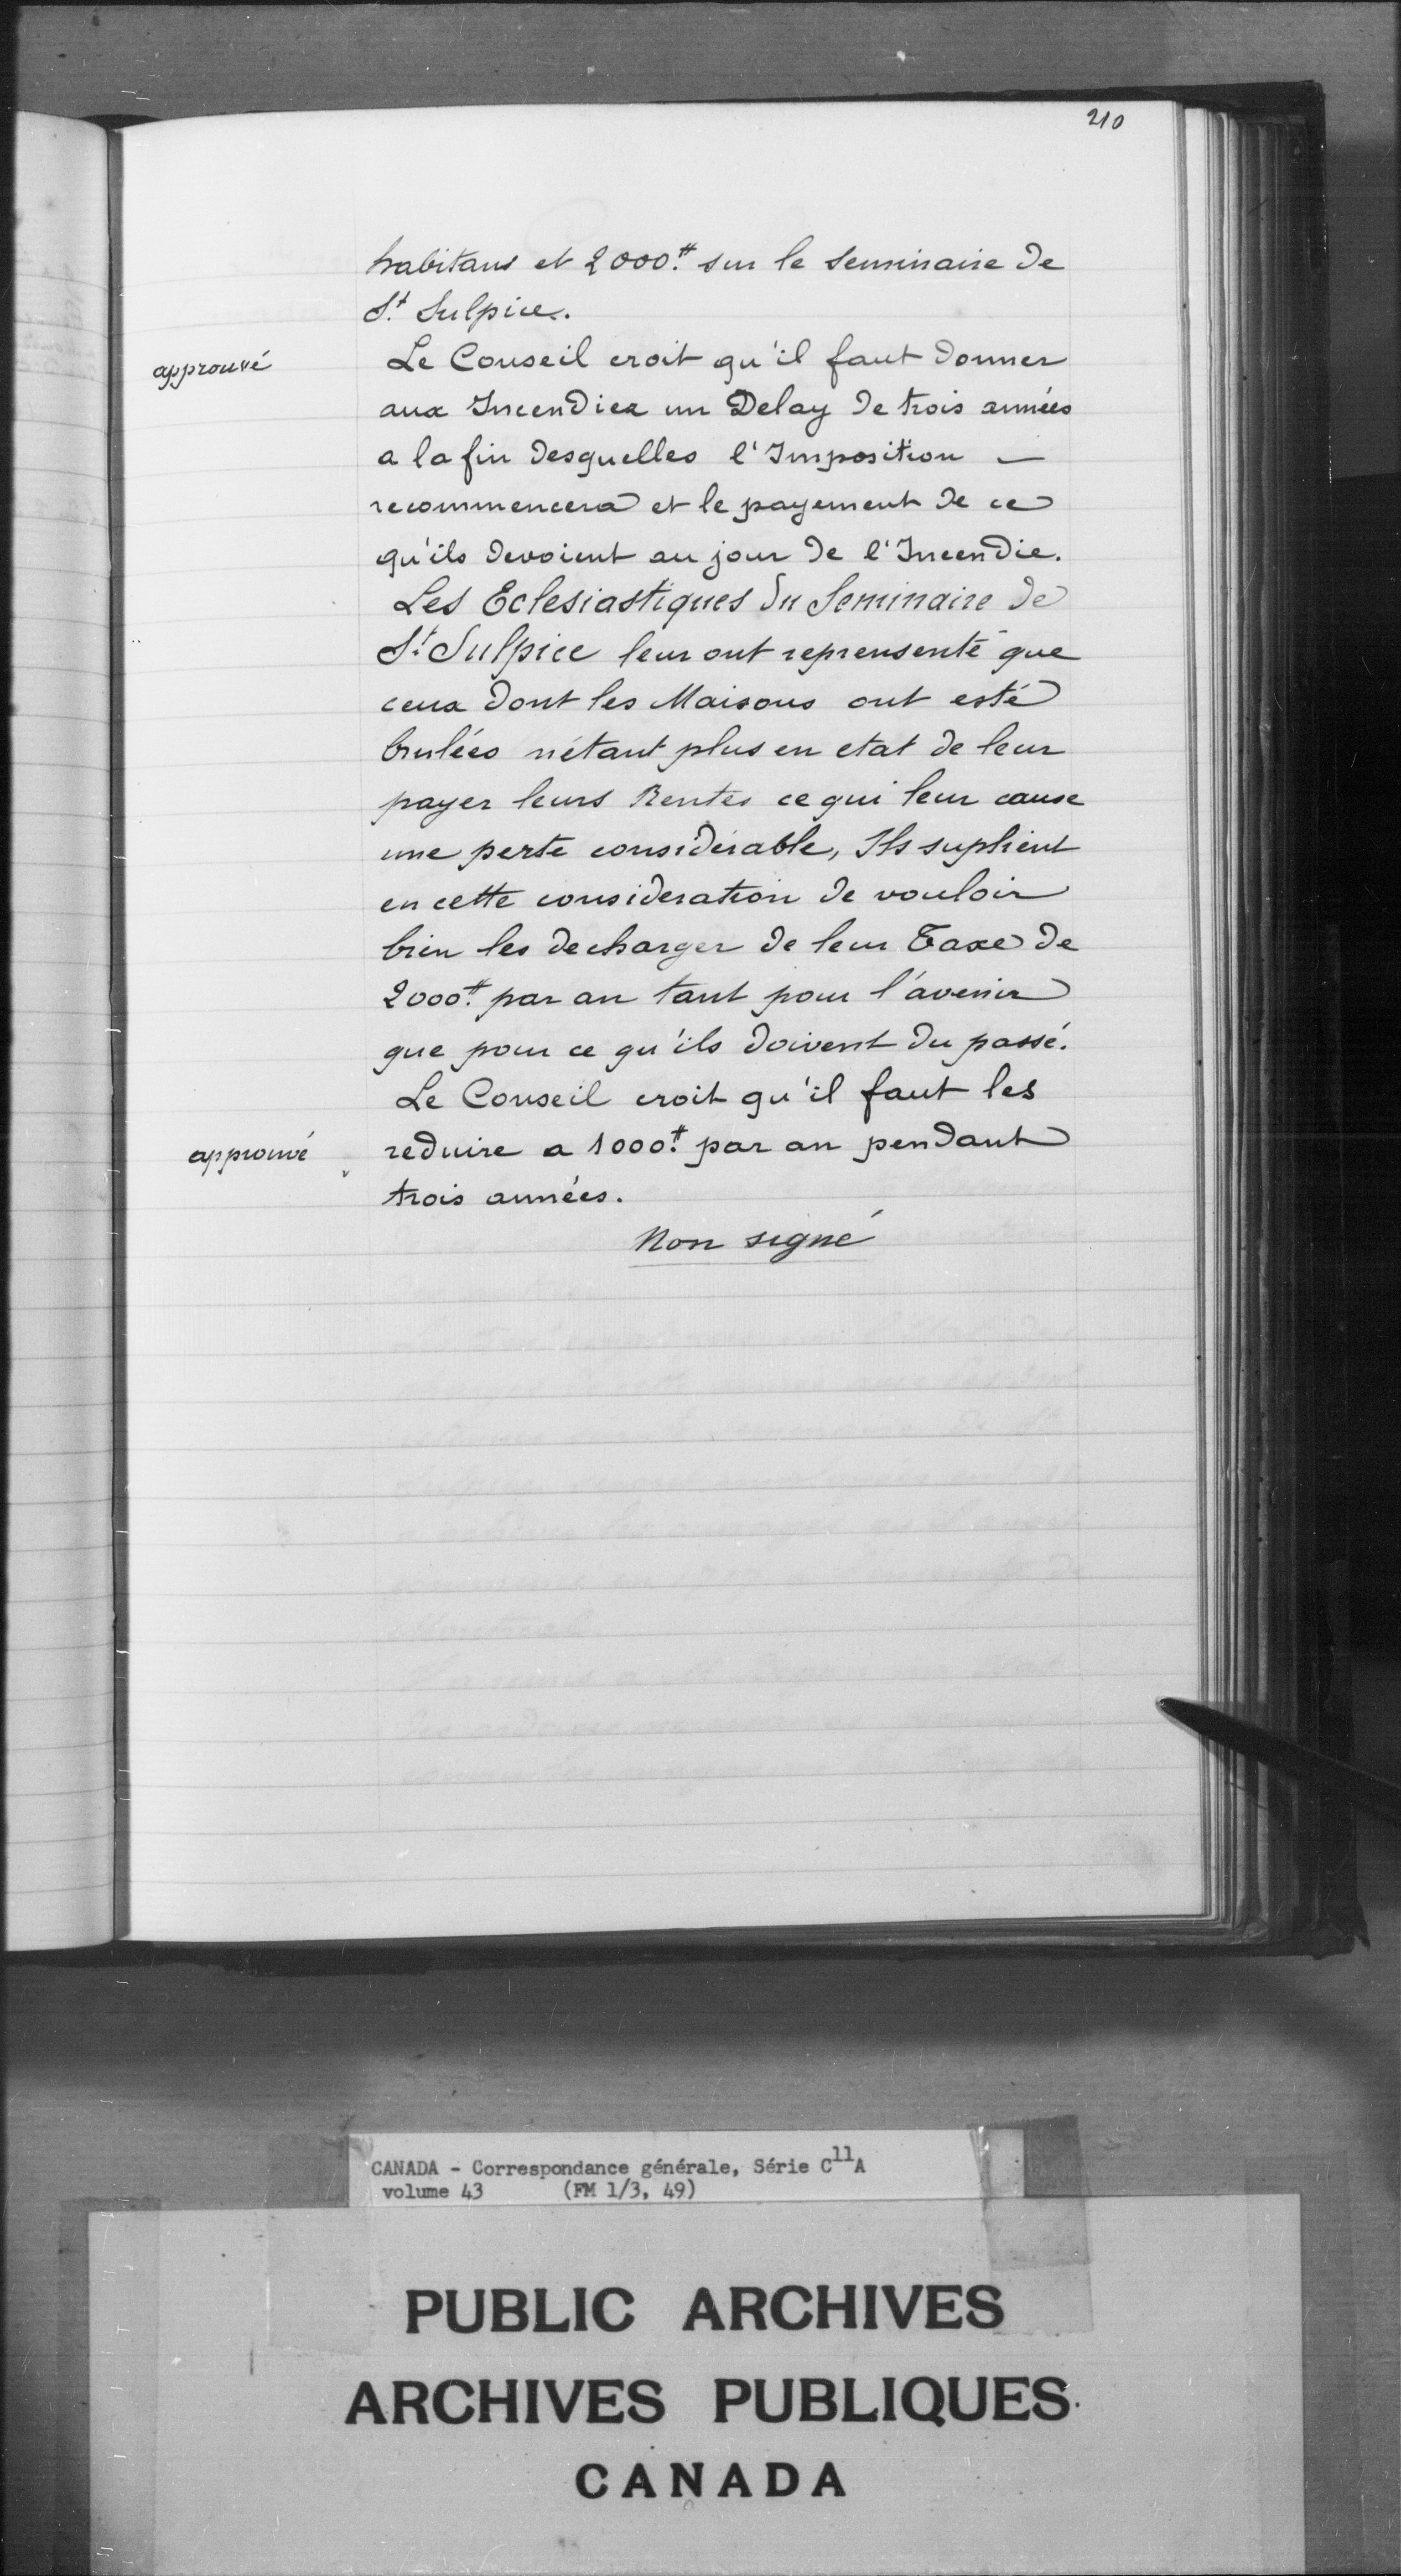 210
habitans et 2000.# sur le Seminaire de
S.t Sulpice.
approuvé
Le Conseil croit qu'il faut donner
aux Incendiez un Delay de trois années
a la fin desquelles l'Imposition —
recommencera et le payement de ce
qu'ils devoient au jour de l'Incendie.
Les Eclesiastiques du Seminaire de
S.t Sulpice leur ont reprensenté que
ceux dont les Maisons ont esté
brulées n'étant plus en etat de leur
payer leurs Rentes ce qui leur cause
une perte considérable, Ils suplient
en cette consideration de vouloir
bien les decharger de leur Taxe de
2000.# par an tant pour l'avenir
que pour ce qu'ils doivent du passé.
Le Conseil croit qu'il faut les
approuvé
reduire a 1000.# par an pendant
trois années.
Non signé
CANADA - Correspondance générale, Série C11A
volume 43 (FM 1/3, 49)
PUBLIC ARCHIVES
ARCHIVES PUBLIQUES
CANADA